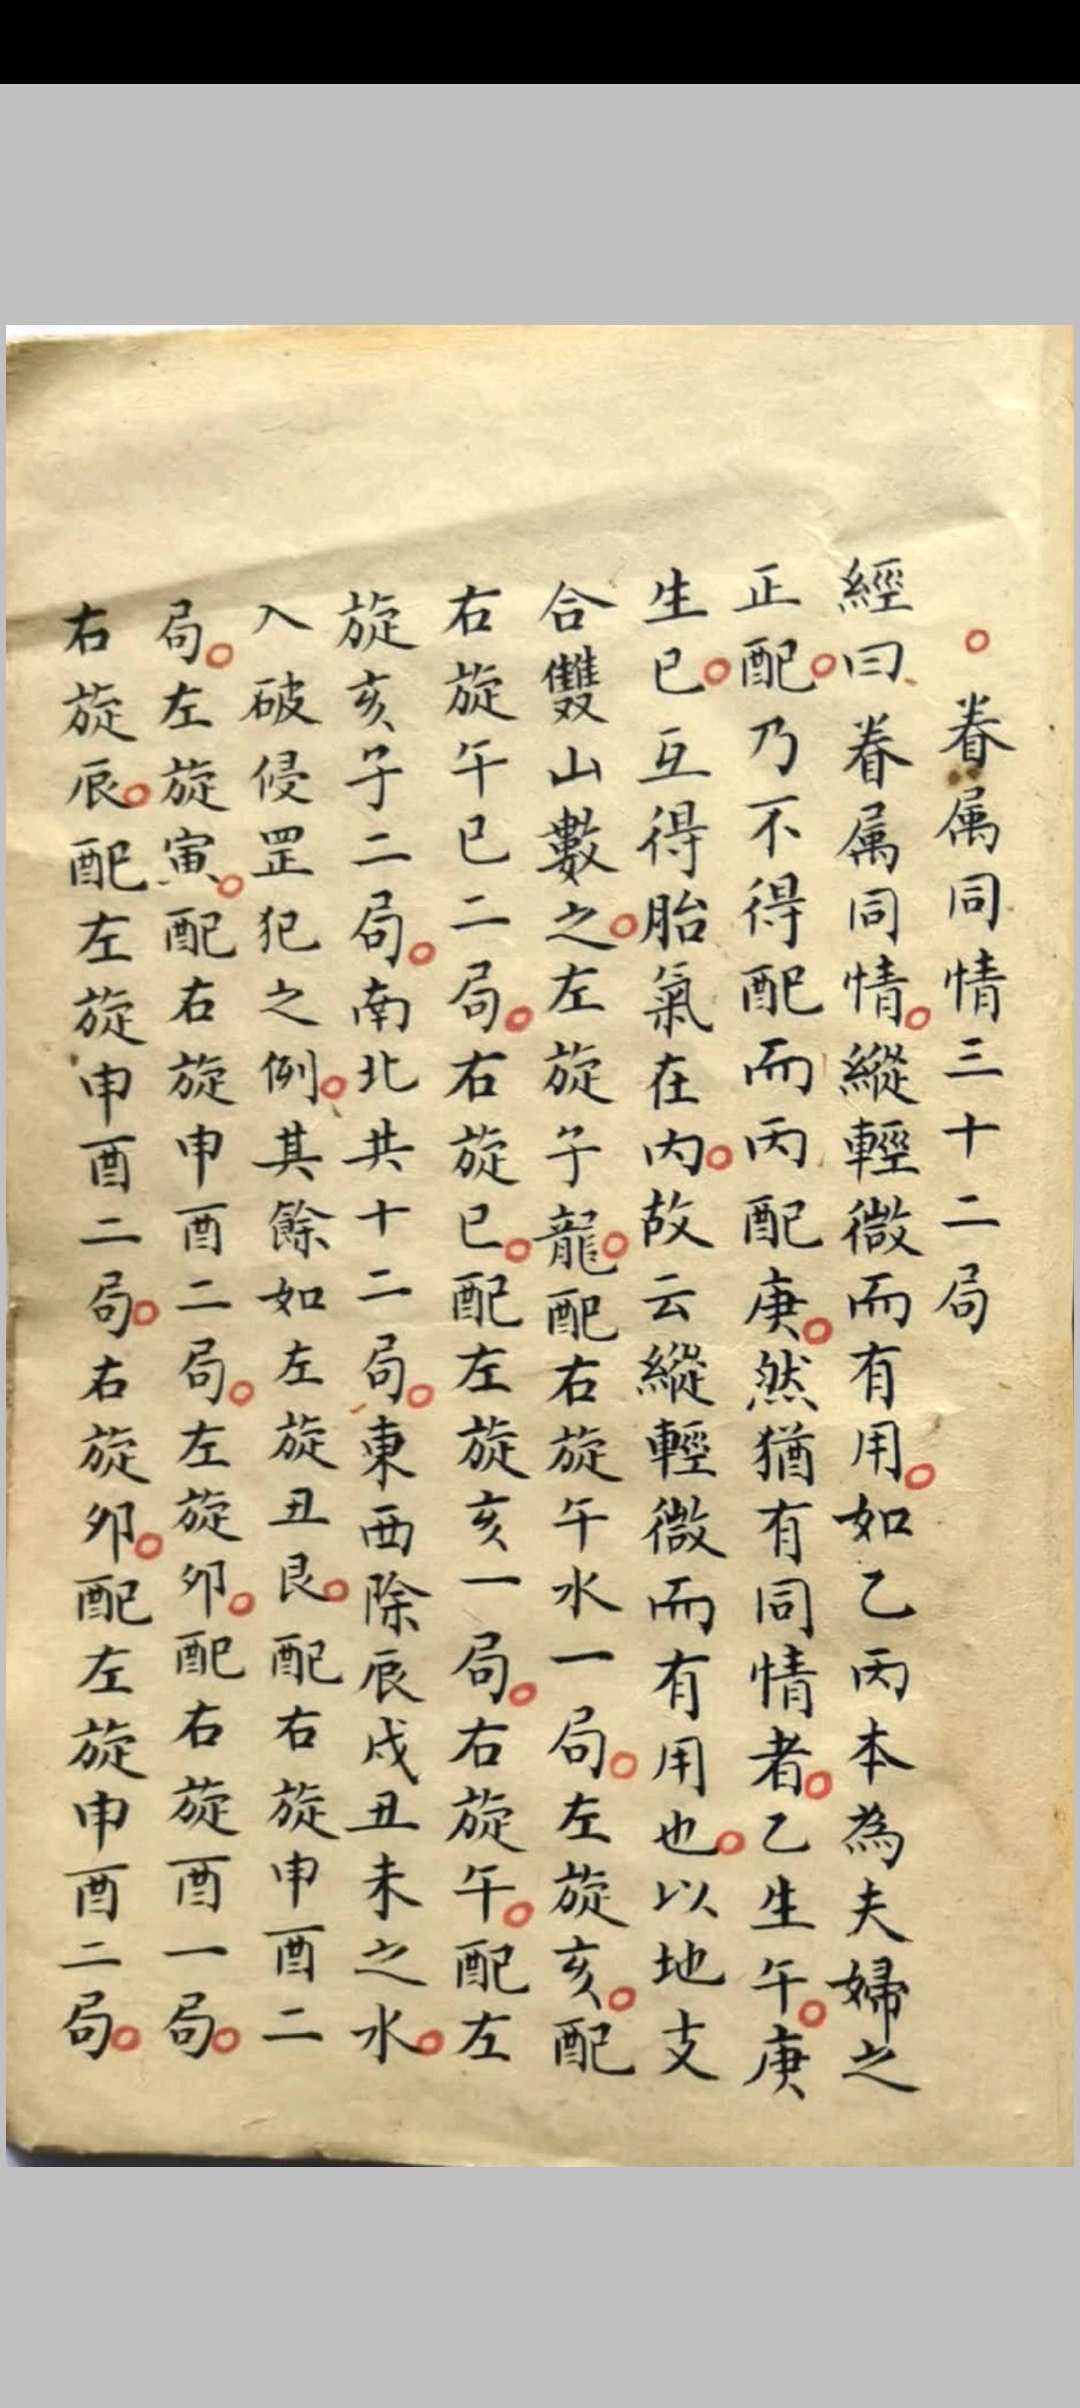 ○眷属同情三十二局
經曰眷属同情○縱輕微而有用○如乙丙本為夫婦之
正配○乃不得配而丙配庚○然猶有同情者○乙生午○庚
生巳○互得胎氣在内○故云縱輕微而有用也○以地支
合雙山數之○左旋子龍○配右旋午水一局○左旋亥○配
右旋午巳二局○右旋巳○配左旋亥一局○右旋午○配左
旋亥子二局○南北共十二局○東西除辰戌丑未之水○
入破侵罡犯之例○其餘如左旋丑艮○配右旋申酉二
局○左旋寅○配右旋申酉二局○左旋卯○配右旋酉一局○
右旋辰○配左旋申酉二局○右旋卯○配左旋申酉二局○